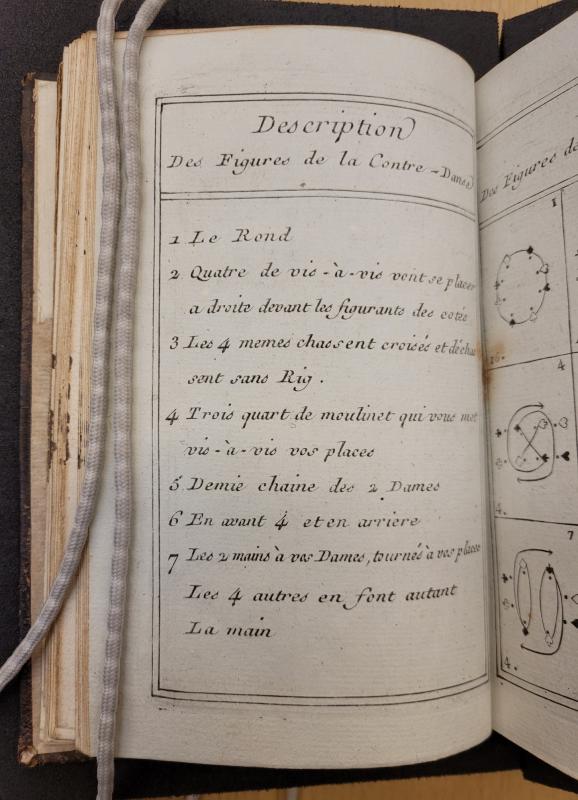 Description
Des Figures de la Contre-Danse
1 Le Rond
2 Quatre de vis-à-vis vont se placer
a droite devant les figurants des cotés
3 Les 4 memes chassent croisés et déchas
sent sans Rig.
4 Trois quart de moulinet qui vous met
vis-à-vis vos places
5 Demie chaine des 2 Dames
6 En avant 4 et en arriere
7 Les 2 mains à vos Dames, tournés à vos places
Les 4 autres en font autant
La main
Des Figures de
1
4
4.
7
4.